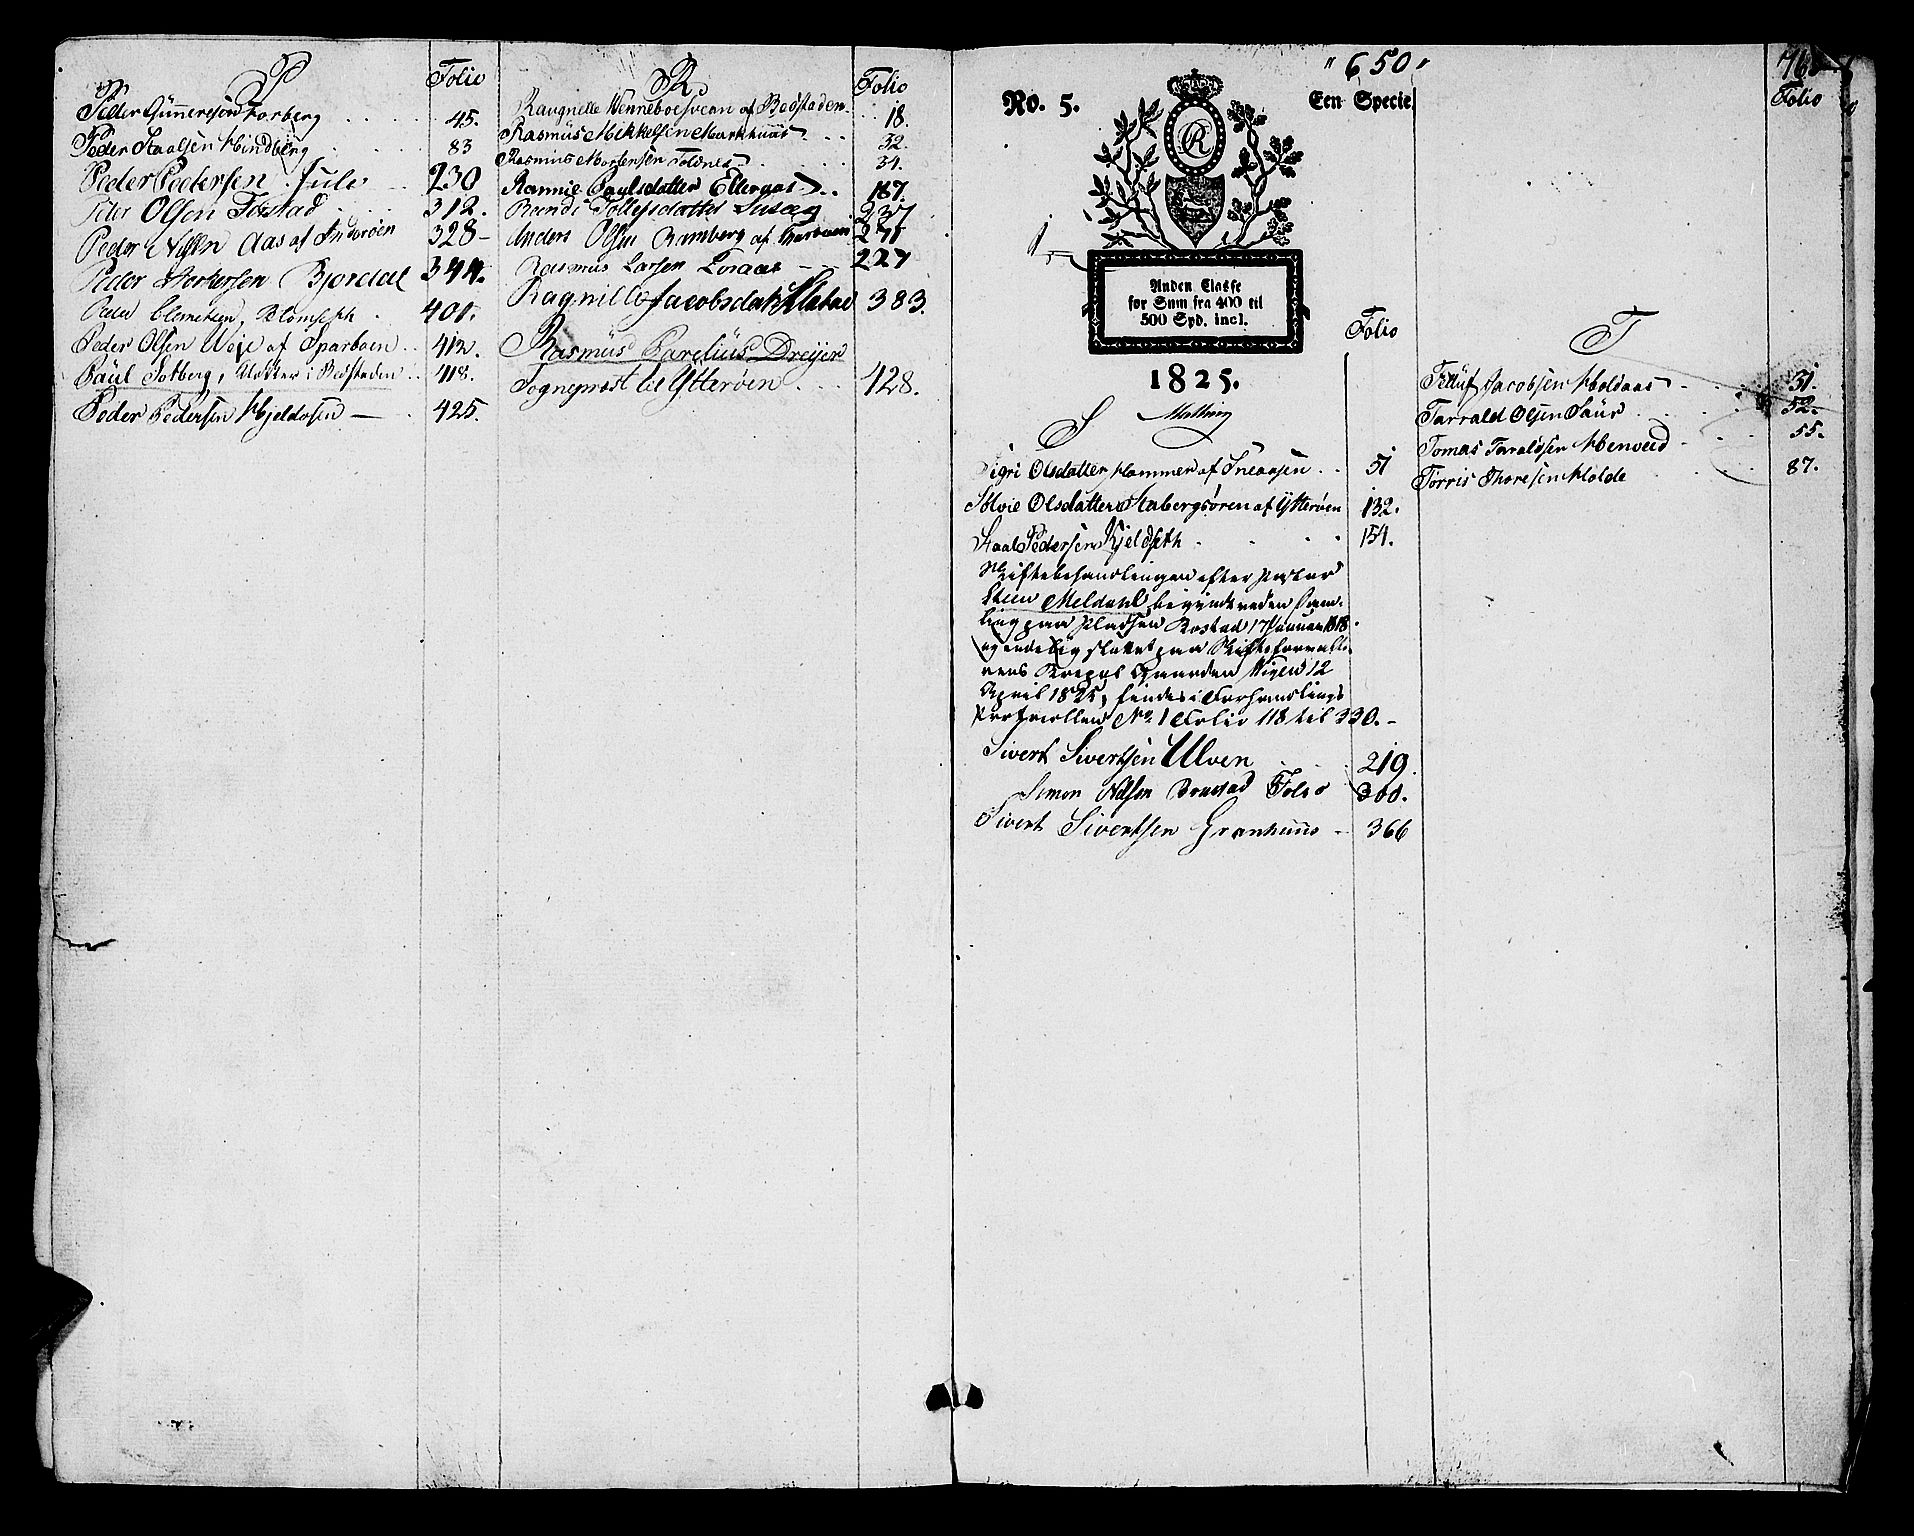 P
Folio
Peder Gunnersen Forberg . . . . 45.
Peder Staalsen Hindberg . . . 83
Peder Pedersen Jule .. 230
Peder Olsen Tostad . . . 312.
Peder Nilsen Aas af Inderøen 328-
Peder Storkersen Bjordal 344.
Peder Clemetsen Blomseth . 401.
Peder Olsen Weie af Sparboen .. 412.
Paul Solberg, i Bedstaden .. 418.
Peder Pedersen Hjeldosen — . 425.
R
Folio
Raugnille Wenneboesveen af Bedstaden . . 18.
Rasmus Mikkelsen Markhuus . . 32.
Rasmus Mortensen Foldnes . . . 34.
Rannie Paulsdatter Ellergaas .. 187.
Randi Tollefsdatter 237
Anders Olsen Ramberg af Sparboen 271
Rasmus Larsen - - 227
Ragnille Jacobsdatt 383.
Rasmus Parelius Dreyer
Sogneprest til Ytterøen . . . 428.
"650"
No. 5.
Een Specie
R
Anden Classe
for Sum fra 400 til
500 Spd. incl.
1825.
S
Folio
Sigri Olsdatter Hammer af Sneaasen . . 51
Solvie Olsdatter Stabergsøren af Ytterøen 132.
Staal Pedersen Kjeldseth . . . 154.
Skiftebehandlingen efter Pastor
Steen Meldahl begyndt ved en Sam-
ling paa Pladsen Rostad 17 Januar 1818.
og endelig sluttet paa Skifteforvalte-
rens Gaarden Wigen 12
April 1825, findes i Forhandlings
Protocollen No 1 Folio 118 til 220.-
Sivert Sivertsen Ulven . . . 219.
Simon Nilsen Folio 300.
Sivert Sivertsen Granhuus - 366
Folio
T
Jacobsen Moldaas . . . 31.
Tarrald Olsen Saur . . . 52.
Tomas Taraldsen Henveed . . . 55.
Torris Thoresen Molde . . . 87.